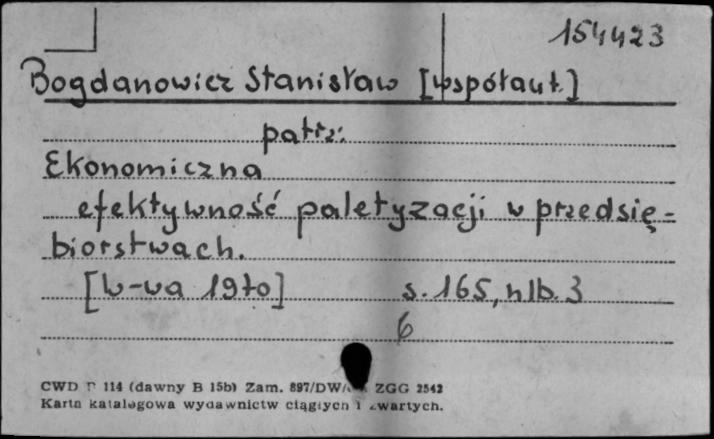 154423
Bogdanowicz Stanisław [współaut.]
patrz:
Ekonomiczna
efektywność paletyzacji w przedsię-
biorstwach.
[W-wa 1970] s. 165, nlb. 3
6
CWD 114 (dawny B 15b) Zam. 897/DW/ ZGG 2542
Karta katalogowa wydawnictw ciągłych i zwartych.